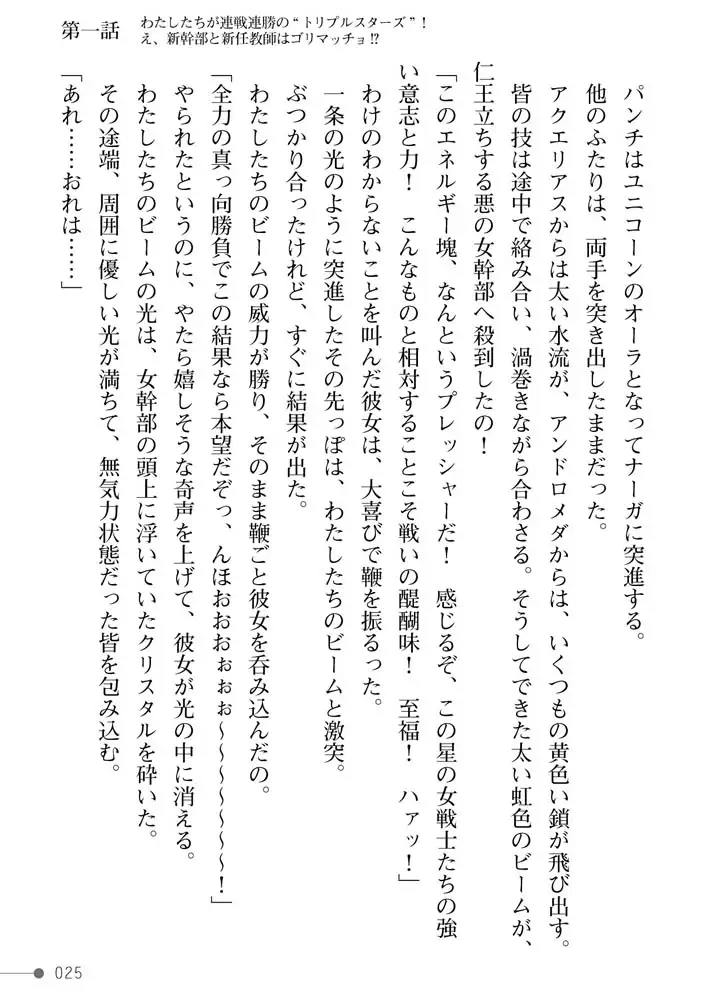 第一話
わたしたちが連戦連勝の“トリプルスターズ”！
え、新幹部と新任教師はゴリマッチョ!?
パンチはユニコーンのオーラとなってナーガに突進する。
他のふたりは、両手を突き出したままだった。
アクエリアスからは太い水流が、アンドロメダからは、いくつもの黄色い鎖が飛び出す。
皆の技は途中で絡み合い、渦巻きながら合わさる。そうしてできた太い虹色のビームが、
仁王立ちする悪の女幹部へ殺到したの！
「このエネルギー塊、なんというプレッシャーだ！　感じるぞ、この星の女戦士たちの強
い意志と力！　こんなものと相対することこそ戦いの醍醐味！　至福！　ハァッ！」
わけのわからないことを叫んだ彼女は、大喜びで鞭を振るった。
一条の光のように突進したその先っぽは、わたしたちのビームと激突。
ぶつかり合ったけれど、すぐに結果が出た。
わたしたちのビームの威力が勝り、そのまま鞭ごと彼女を呑み込んだの。
「全力の真っ向勝負でこの結果なら本望だぞっ、んほおおおぉぉぉ〜〜〜〜〜〜！」
やられたというのに、やたら嬉しそうな奇声を上げて、彼女が光の中に消える。
わたしたちのビームの光は、女幹部の頭上に浮いていたクリスタルを砕いた。
その途端、周囲に優しい光が満ちて、無気力状態だった皆を包み込む。
「あれ……おれは……」
025